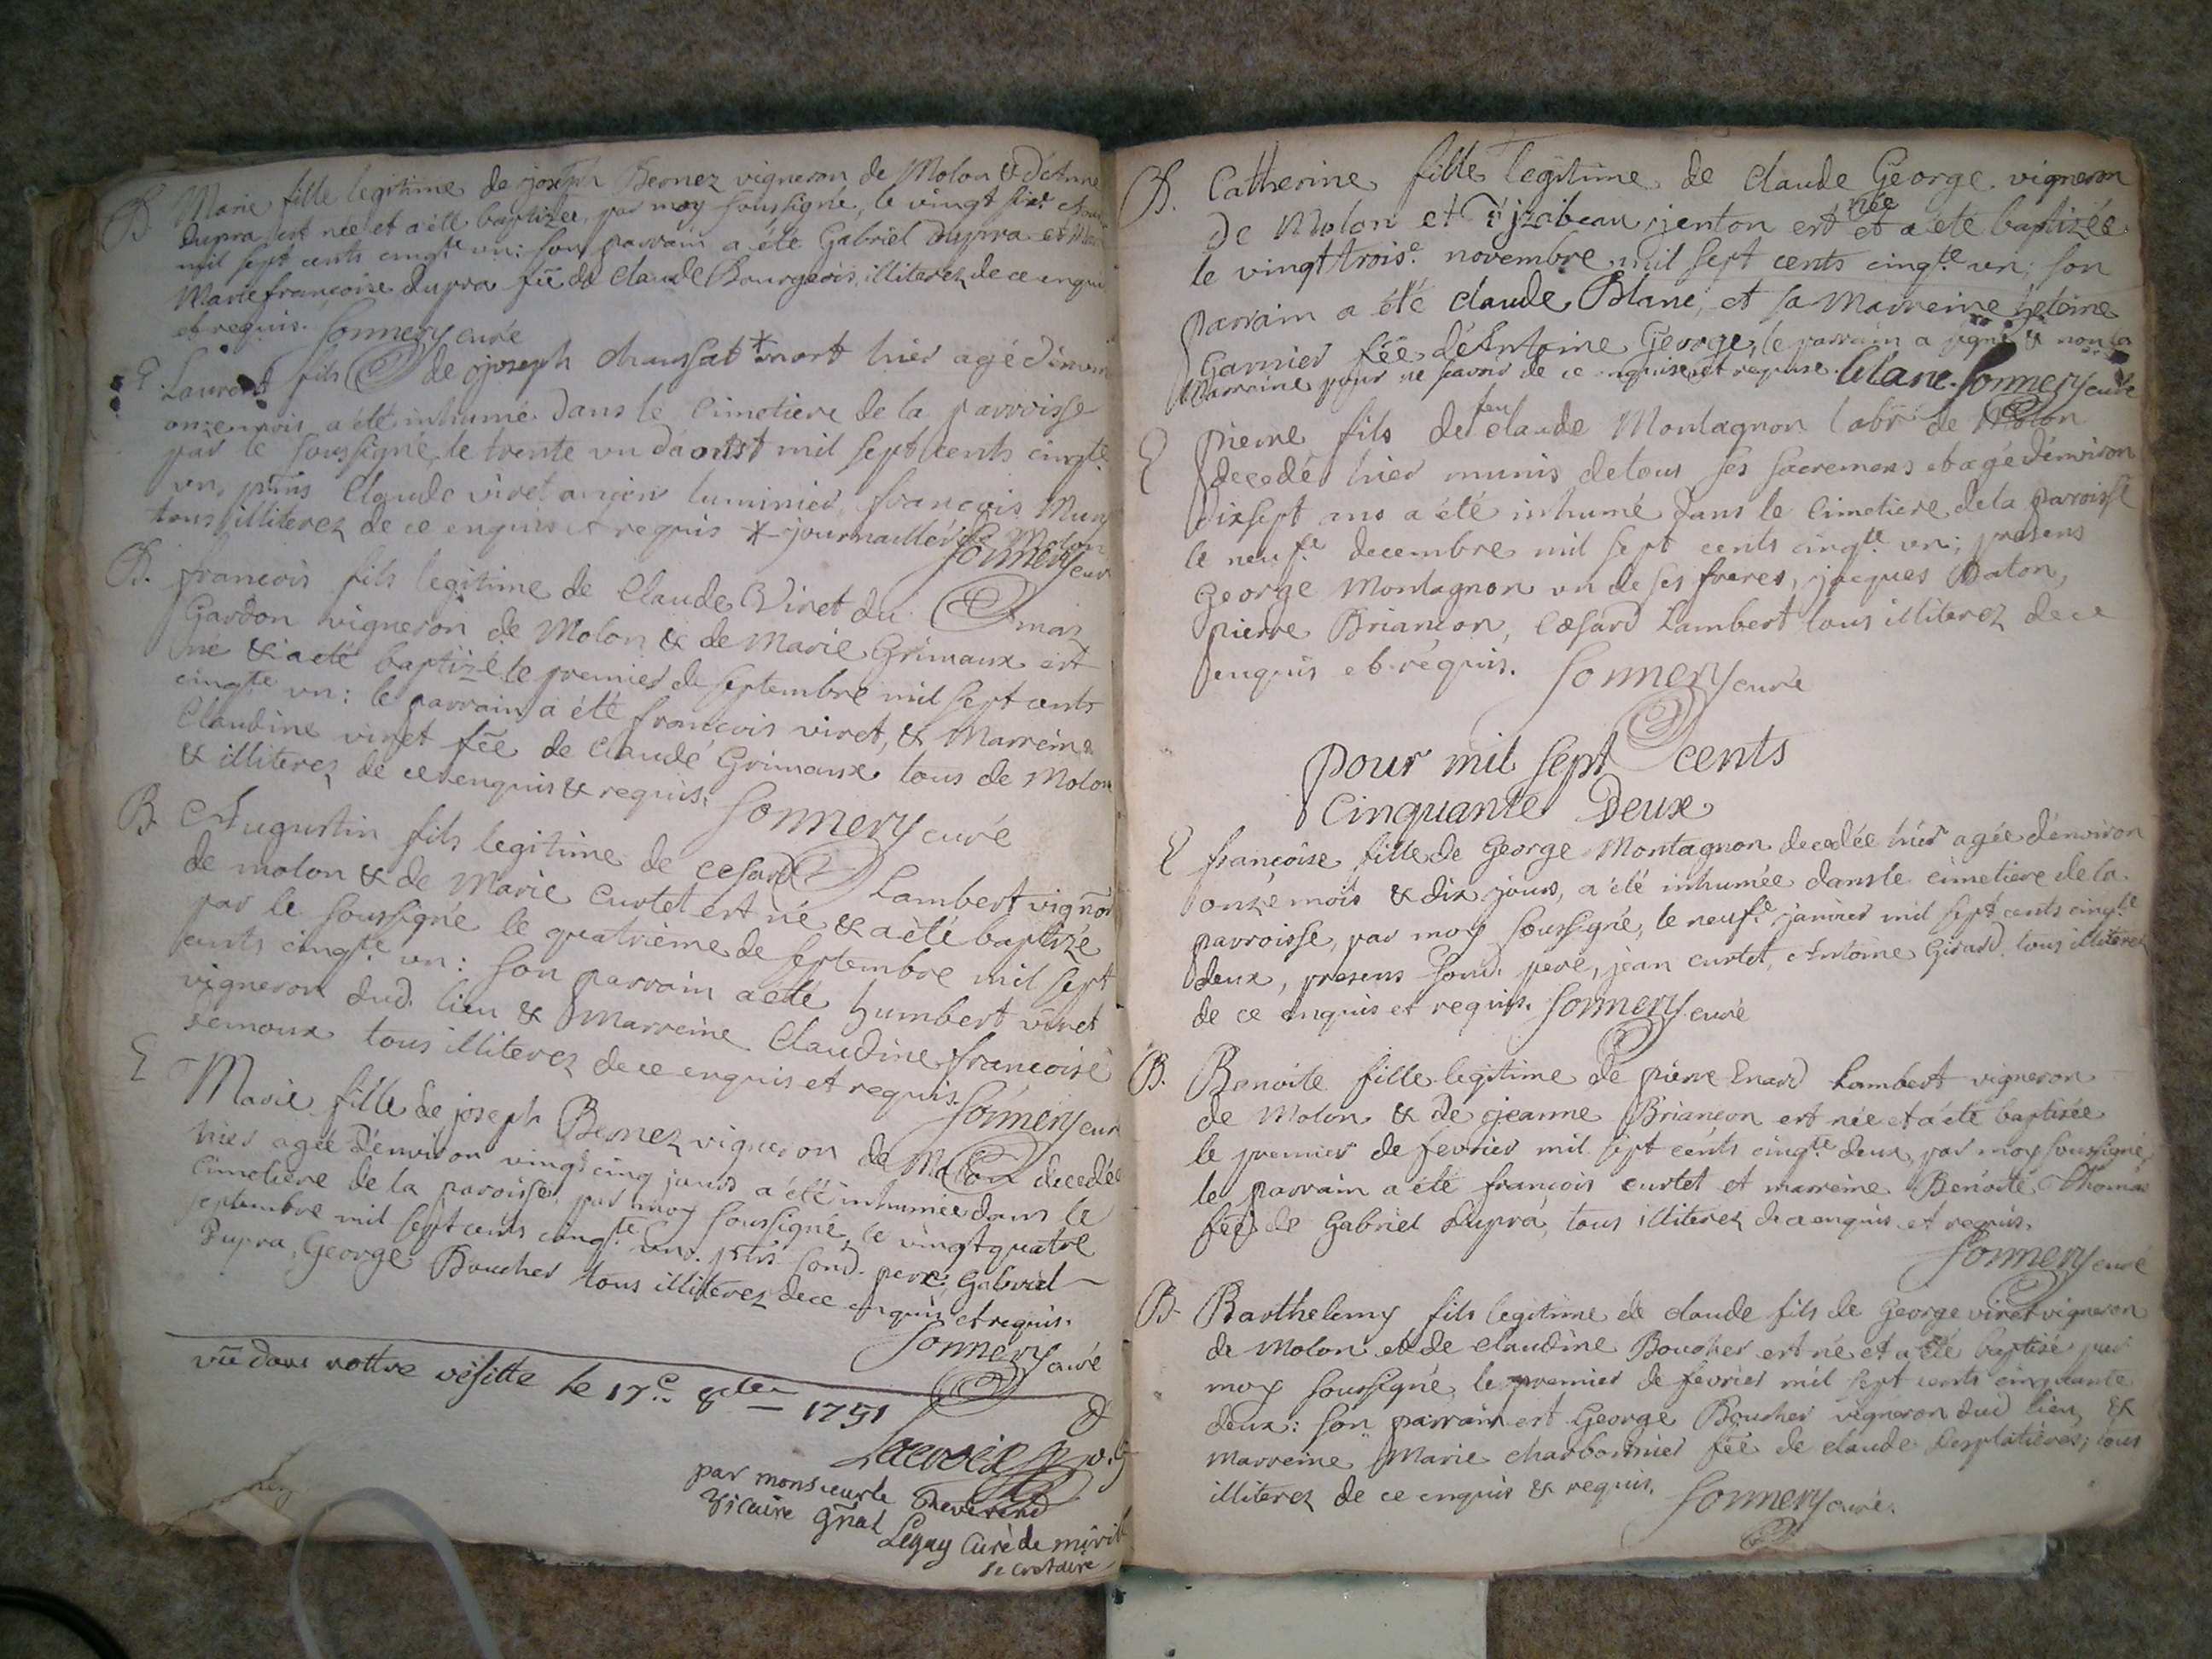 B Marie fille legitime de joseph Bernez vigneron de Molon & d'Anne
Dupra est née et a été baptizée, par moy soussigné, le vingt sixe aoust
mil sept cents cinqte un: son parrain a été Gabriel Dupra et
Marie françoise Dupra fẽe de Claude Bourgeois, illiterez de ce enquis
et requis. Sonnery curé
E Laurent fils de joseph chaussat * mort hier agé d'environ
onze mois a été inhumé dans le Cimetiere de la parroisse
par le soussigné, le trente un d'aoust mil sept cents cinqte
un, pn̄ts Claude viret ancien luminier, françois
tous illiterez de ce enquis et requis * journaillier de Molon
Sonnery curé
B. françois fils legitime de Claude Viret du mas
Gardon vigneron de Molon & de Marie Grimaux est
né & a été baptizé le premier de septembre mil sept cents
cinqte un: le parrain a été françois viret, & Marreine
Claudine viret fẽe de Claude Grimaux tous de Molon
& illiterez de ce enquis & requis. Sonnery curé
B Augustin fils legitime de Cesard Lambert vign̄on
de molon & de Marie Curtet est né & a été baptizé
par le soussigné le quatrième de septembre mil sept
cents cinqte un: son parrain a été humbert viret
vigneron dud. lieu & Marreine Claudine françoise
remoux tous illiterez de ce enquis et requis.
Sonnery curé
E Marie fille de joseph Bernez vigneron de Molon decedée
hier agée d'environ vingt cinq jours a été inhumée dans le
Cimetiere de la paroisse, par moy soussigné, le vingt quatre
septembre mil sept cents cinqte un. pn̄ts sond. pere, Gabriel
Dupra, George Boucher tous illiterez de ce enquis et requis.
Sonnery curé
vû dans nottre visitte le 17e 8bre 1751
par monsieur le Reverend
Vicaire gñal
Legay Curé de
secretaire
B. Catherine fille legitime de Claude George vigneron
de Molon et d'jzabeau jenton est née et a été baptizée
le vingt troise novembre mil sept cents cinqte un; son
parrain a été Claude Blanc, et sa Marreine
Garnier fẽe d'Antoine George, le parrain a signé & non la
Marraine pour ne savoir de ce enquise et requise. Blanc. Sonnery curé
E pierre fils de feu Claude Montagnon labr de Molon
decedé hier munis de tous ses sacremens et agé d'environ
dixsept ans a été inhumé dans le Cimetiere de la parroisse
le neufe decembre mil sept cents cinqte un; presens
George Montagnon un de ses freres, jacques Baton,
pierre Briançon, Cæsard Lambert tous illiterez de ce
enquis et requis. Sonnery curé
Pour mil sept cents
Cinquante Deux
E françoise fille de George Montagnon decedée hier agée d'environ
onze mois & dix jours, a été inhumée dans le cimetiere de la
parroisse, par moy soussigné, le neufe janvier mil sept cents cinqte
deux, presens sond. peré, jean curtet, Antoine Girard tous illiterez
de ce enquis et requis. Sonnery curé
B. Benoite fille legitime de pierre Enard Lambert vigneron
de Molon & de jeanne Briançon est née et a été baptisée
le premier de fevrier mil sept cents cinqte deux, par moy soussigné
le parrain a été françois curtet et marreine Benoite Thomas
fẽe de Gabriel Dupra, tous illiterez de ce enquis et requis.
Sonnery curé
B. Barthelemy fils legitime de claude fils de George viret vigneron
de Molon et de claudine Boucher est né et a été baptisé par
moy soussigné, le premier de fevrier mil sept cents cinquante
deux: son parrain est George Boucher vigneron dud lieu, &
marreine Marie charbonnier fẽe de claude Desplatieres; tous
illiterez de ce enquis & requis. Sonnery curé.